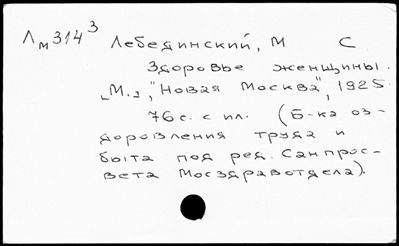 Лм314³ Лебединский, М С
Здоровье женщины.
„М.„, "Новая Москва", 1925.
76 с. с ил. (Б-ка оз-
доровления труда и
быта под ред. Санпрос-
вета Мосздравотдела).